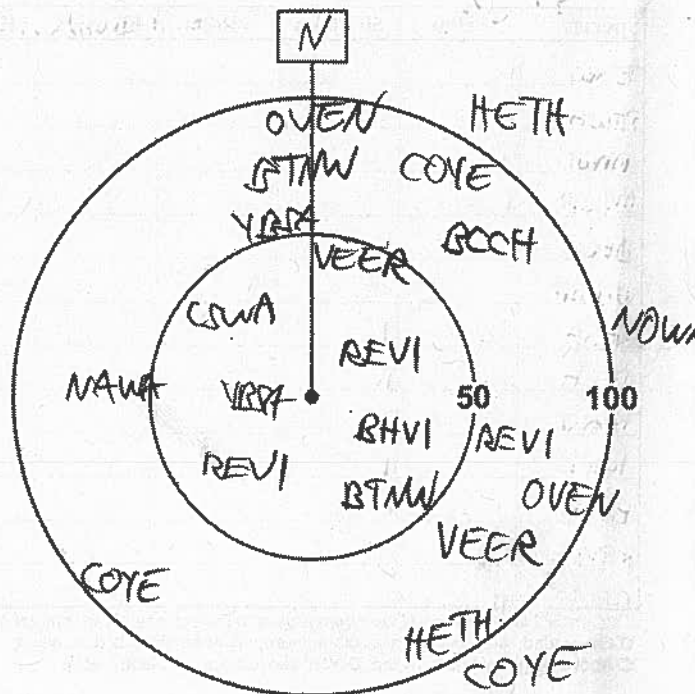 N
OVEN
HETH
BTNW
COYE
YBSA
BCCH
VEER
CSWA
NOWA
REVI
NAWA
YBSA
50
100
BHVI
REVI
REVI
BTNW
OVEN
VEER
COYE
HETH
COYE